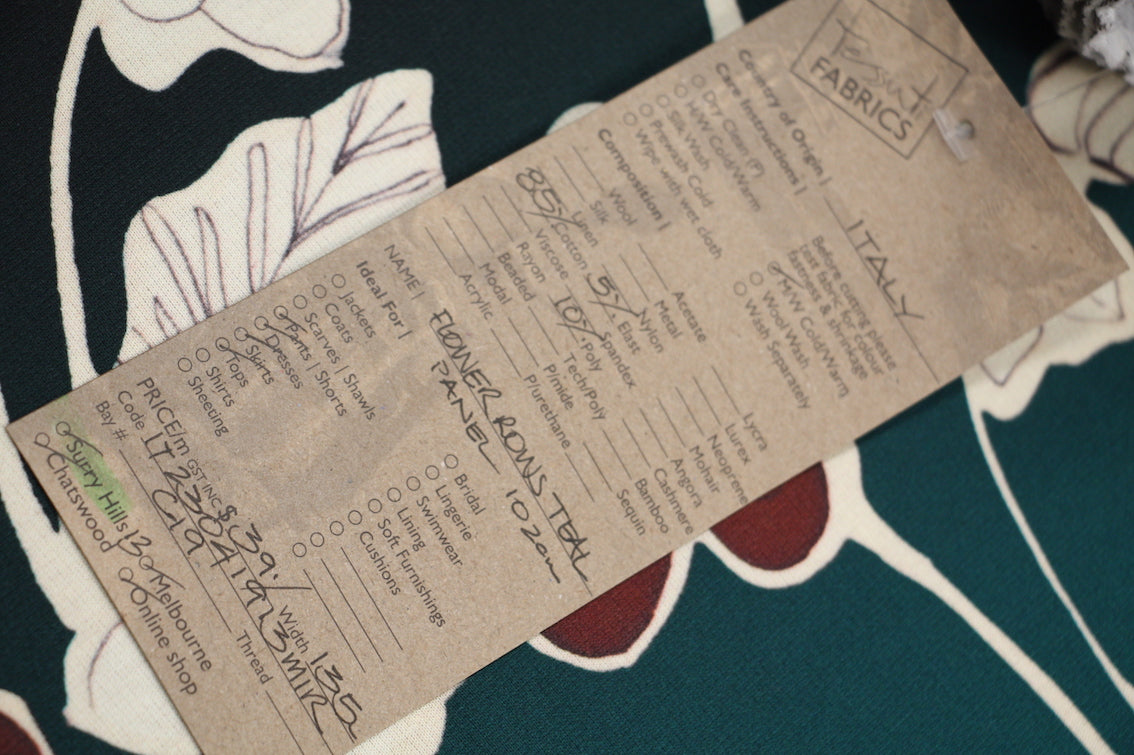 Tessuti
FABRICS
Country of Origin | ITALY
Care Instructions |
Before cutting please
test fabric for colour
fastness & shrinkage
Dry Clean (P)
H/W Cold/Warm
Silk Wash
Prewash Cold
Wipe with wet cloth
M/W Cold/Warm
Wool Wash
Wash Separately
Composition |
Wool
Silk
Linen
85% Cotton
Viscose
Rayon
Beaded
Modal
Acrylic
Acetate
Metal
Nylon
5% Elast
Spandex
10% Poly
Tech/Poly
P/mide
P/urethane
Lycra
Lurex
Neoprene
Mohair
Angora
Cashmere
Bamboo
Sequin
NAME | FLOWER ROWS TEAL
PANEL 102cm
Ideal For |
Jackets
Coats
Scarves | Shawls
Pants | Shorts
Dresses
Skirts
Tops
Shirts
Sheeting
Bridal
Lingerie
Swimwear
Lining
Soft Furnishings
Cushions
PRICE/m GST INC $39./ Width 135
Code
Bay # C19 Thread
Surry Hills 13 Melbourne
Chatswood Online shop